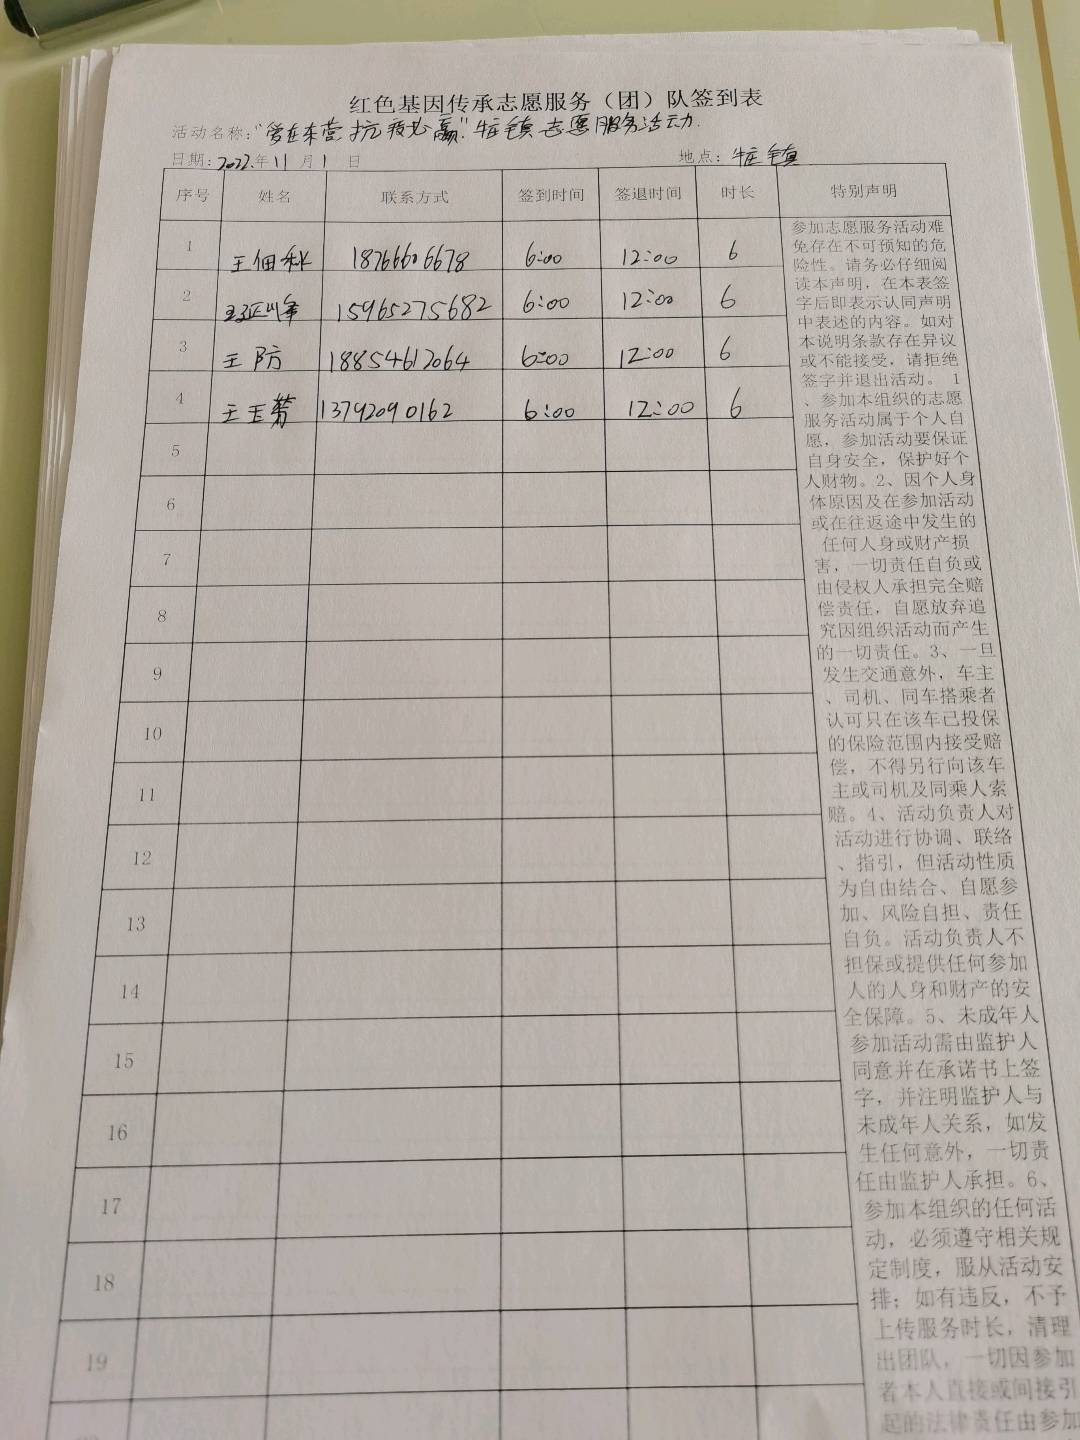 红色基因传承志愿服务（团）队签到表
活动名称："爱在东营 抗疫必赢" 牛庄镇志愿服务活动
日期：2022年11月1日 地点：牛庄镇
序号 姓名 联系方式 签到时间 签退时间 时长 特别声明
1 王佃秋 18766606678 6:00 12:00 6
2 15965275682 6:00 12:00 6
3 王防 18854612064 6:00 12:00 6
4 王玉菊 13792090162 6:00 12:00 6
5
6
7
8
9
10
11
12
13
14
15
16
17
18
19
参加志愿服务活动难
免存在不可预知的危
险性。请务必仔细阅
读本声明，在本表签
字后即表示认同声明
中表述的内容。如对
本说明条款存在异议
或不能接受，请拒绝
签字并退出活动。 1
、参加本组织的志愿
服务活动属于个人自
愿，参加活动要保证
自身安全，保护好个
人财物。2、因个人身
体原因及在参加活动
或在往返途中发生的
任何人身或财产损
害，一切责任自负或
由侵权人承担完全赔
偿责任，自愿放弃追
究因组织活动而产生
的一切责任。3、一旦
发生交通意外，车主
、司机、同车搭乘者
认可只在该车已投保
的保险范围内接受赔
偿，不得另行向该车
主或司机及同乘人索
赔。4、活动负责人对
活动进行协调、联络
、指引，但活动性质
为自由结合、自愿参
加、风险自担、责任
自负。活动负责人不
担保或提供任何参加
人的人身和财产的安
全保障。5、未成年人
参加活动需由监护人
同意并在承诺书上签
字，并注明监护人与
未成年人关系，如发
生任何意外，一切责
任由监护人承担。6、
参加本组织的任何活
动，必须遵守相关规
定制度，服从活动安
排；如有违反，不予
上传服务时长，清理
出团队，一切因参加
者本人直接或间接引
起的法律责任由参加